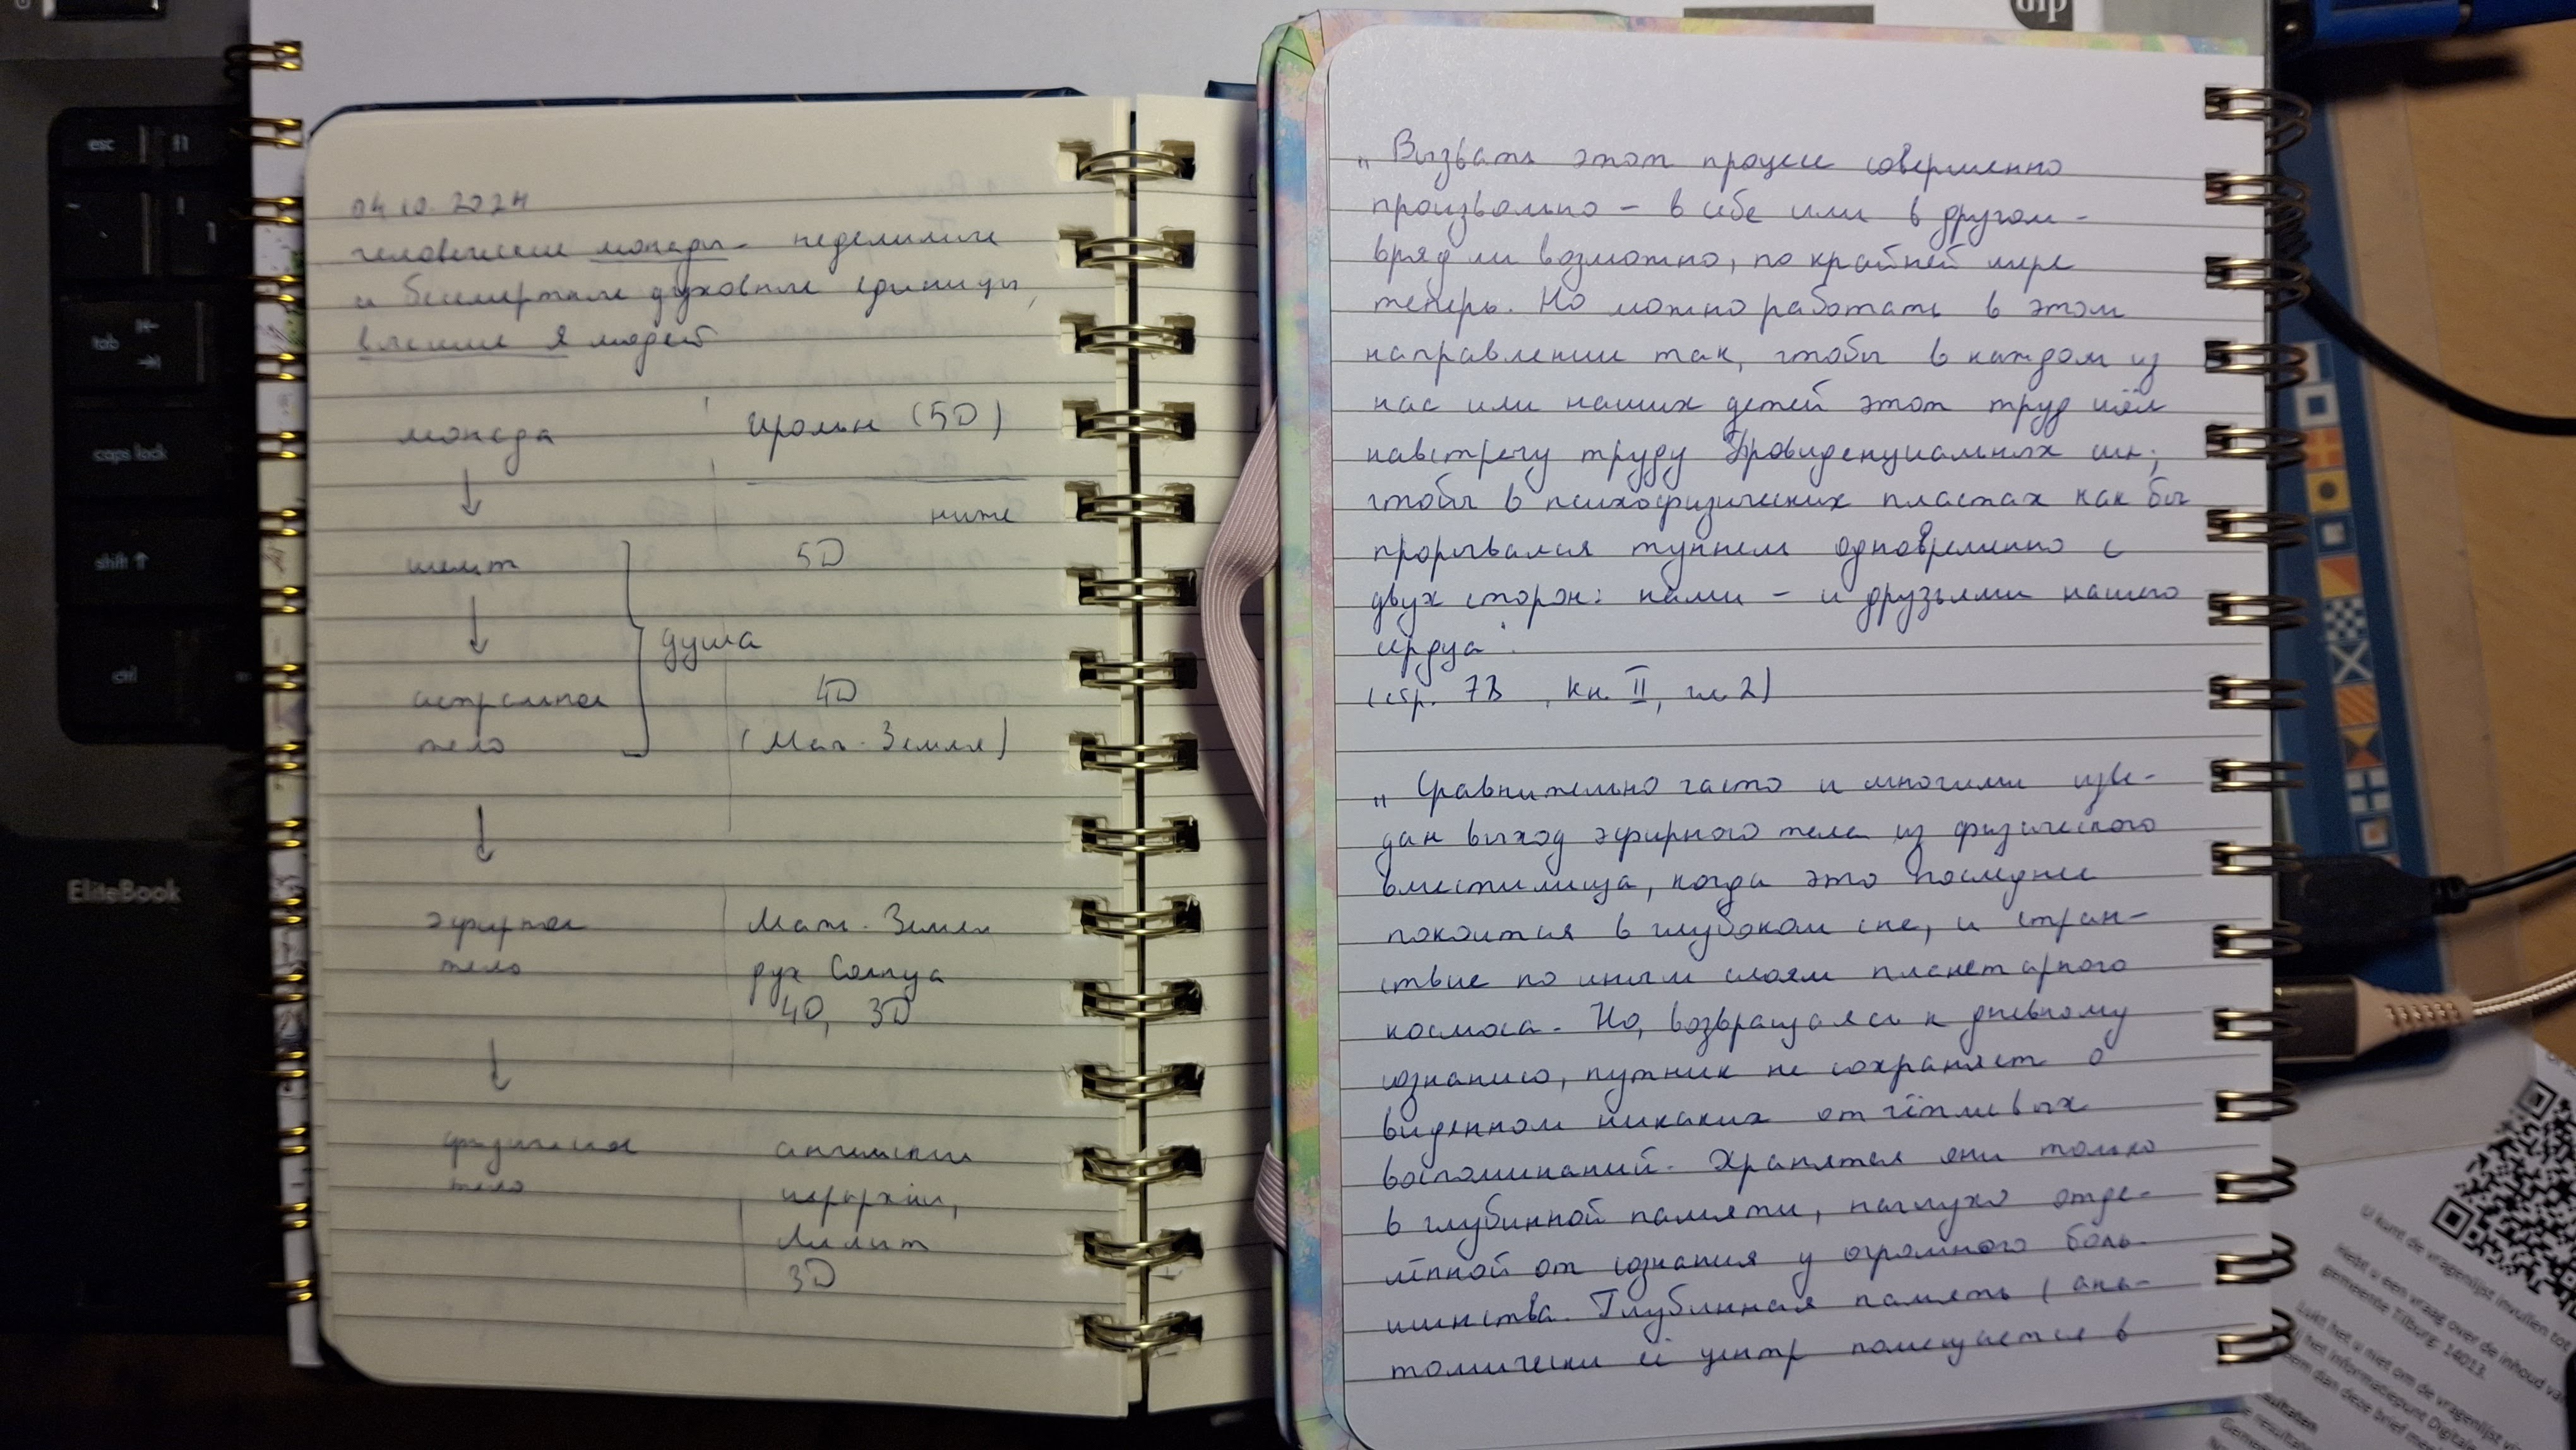 esc
f1
tab
caps lock
shift
ctrl
EliteBook
04.10.2024
человеческие монады - неделимые
и бессмертные духовные единицы,
высшие Я людей
монада
Ирольн (5D)
ниже
шельт
5D
душа
астральное
4D
тело
(Мат. Земля)
эфирное
Мать-Земля
тело
дух Солнца
4D, 3D
физическое
ангельские
тело
иерархии,
Лилит
3D
„Вызвать этот процесс совершенно
произвольно - в себе или в другом -
вряд ли возможно, по крайней мере
теперь. Но можно работать в этом
направлении так, чтобы в каждом из
нас или наших детей этот труд шёл
навстречу труду Провиденциальных сил;
чтобы в психофизических пластах как бы
прорывался туннель одновременно с
двух сторон: нами - и друзьями нашего
сердца"
(стр. 73, кн. II, гл. 2)
„Сравнительно часто и многими изве-
дан выход эфирного тела из физического
вместилища, когда это последнее
покоится в глубоком сне, и стран-
ствие по иным слоям планетарного
космоса. Но, возвращаясь к дневному
сознанию, путник не сохраняет о
виденном никаких отчётливых
воспоминаний. Хранятся они только
в глубинной памяти, наглухо отде-
лённой от сознания у огромного боль-
шинства. Глубинная память (ана-
томически её центр помещается в
dip
U kunt de vragenlijst invullen tot
Hebt u een vraag over de inhoud van
gemeente Tilburg: 14013.
Lukt het u niet om de vragenlijst
het Informatiepunt Digitale
dan deze brief mee